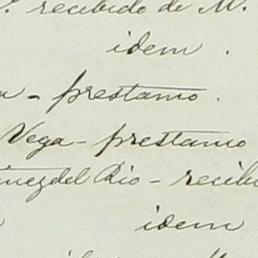 recibido de M.
idem .
- prestamo .
Vega - prestamo
inez del Rio - recib
idem